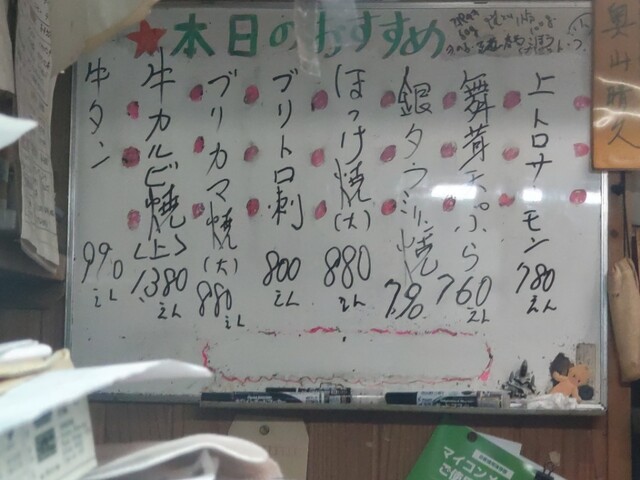 ★本日のおすすめ
上トロサーモン 780えん
舞茸天ぷら 760えん
銀タラ焼 790
ほっけ焼(大) 880えん
ブリトロ刺 800えん
ブリカマ焼(大) 880えん
牛カルビ焼〈上〉 1,380えん
牛タン 990えん
奥山晴久
マイコン
ご使